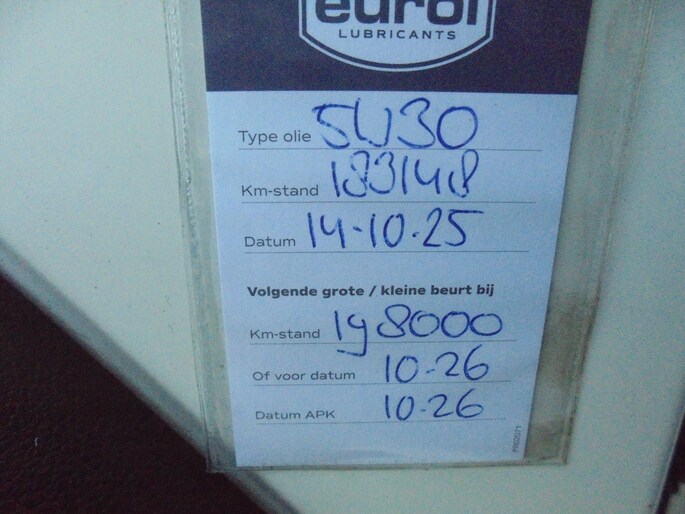 eurol
LUBRICANTS
Type olie 5W30
Km-stand 183148
Datum 14-10-25
Volgende grote / kleine beurt bij
Km-stand 198000
Of voor datum 10-26
Datum APK 10-26